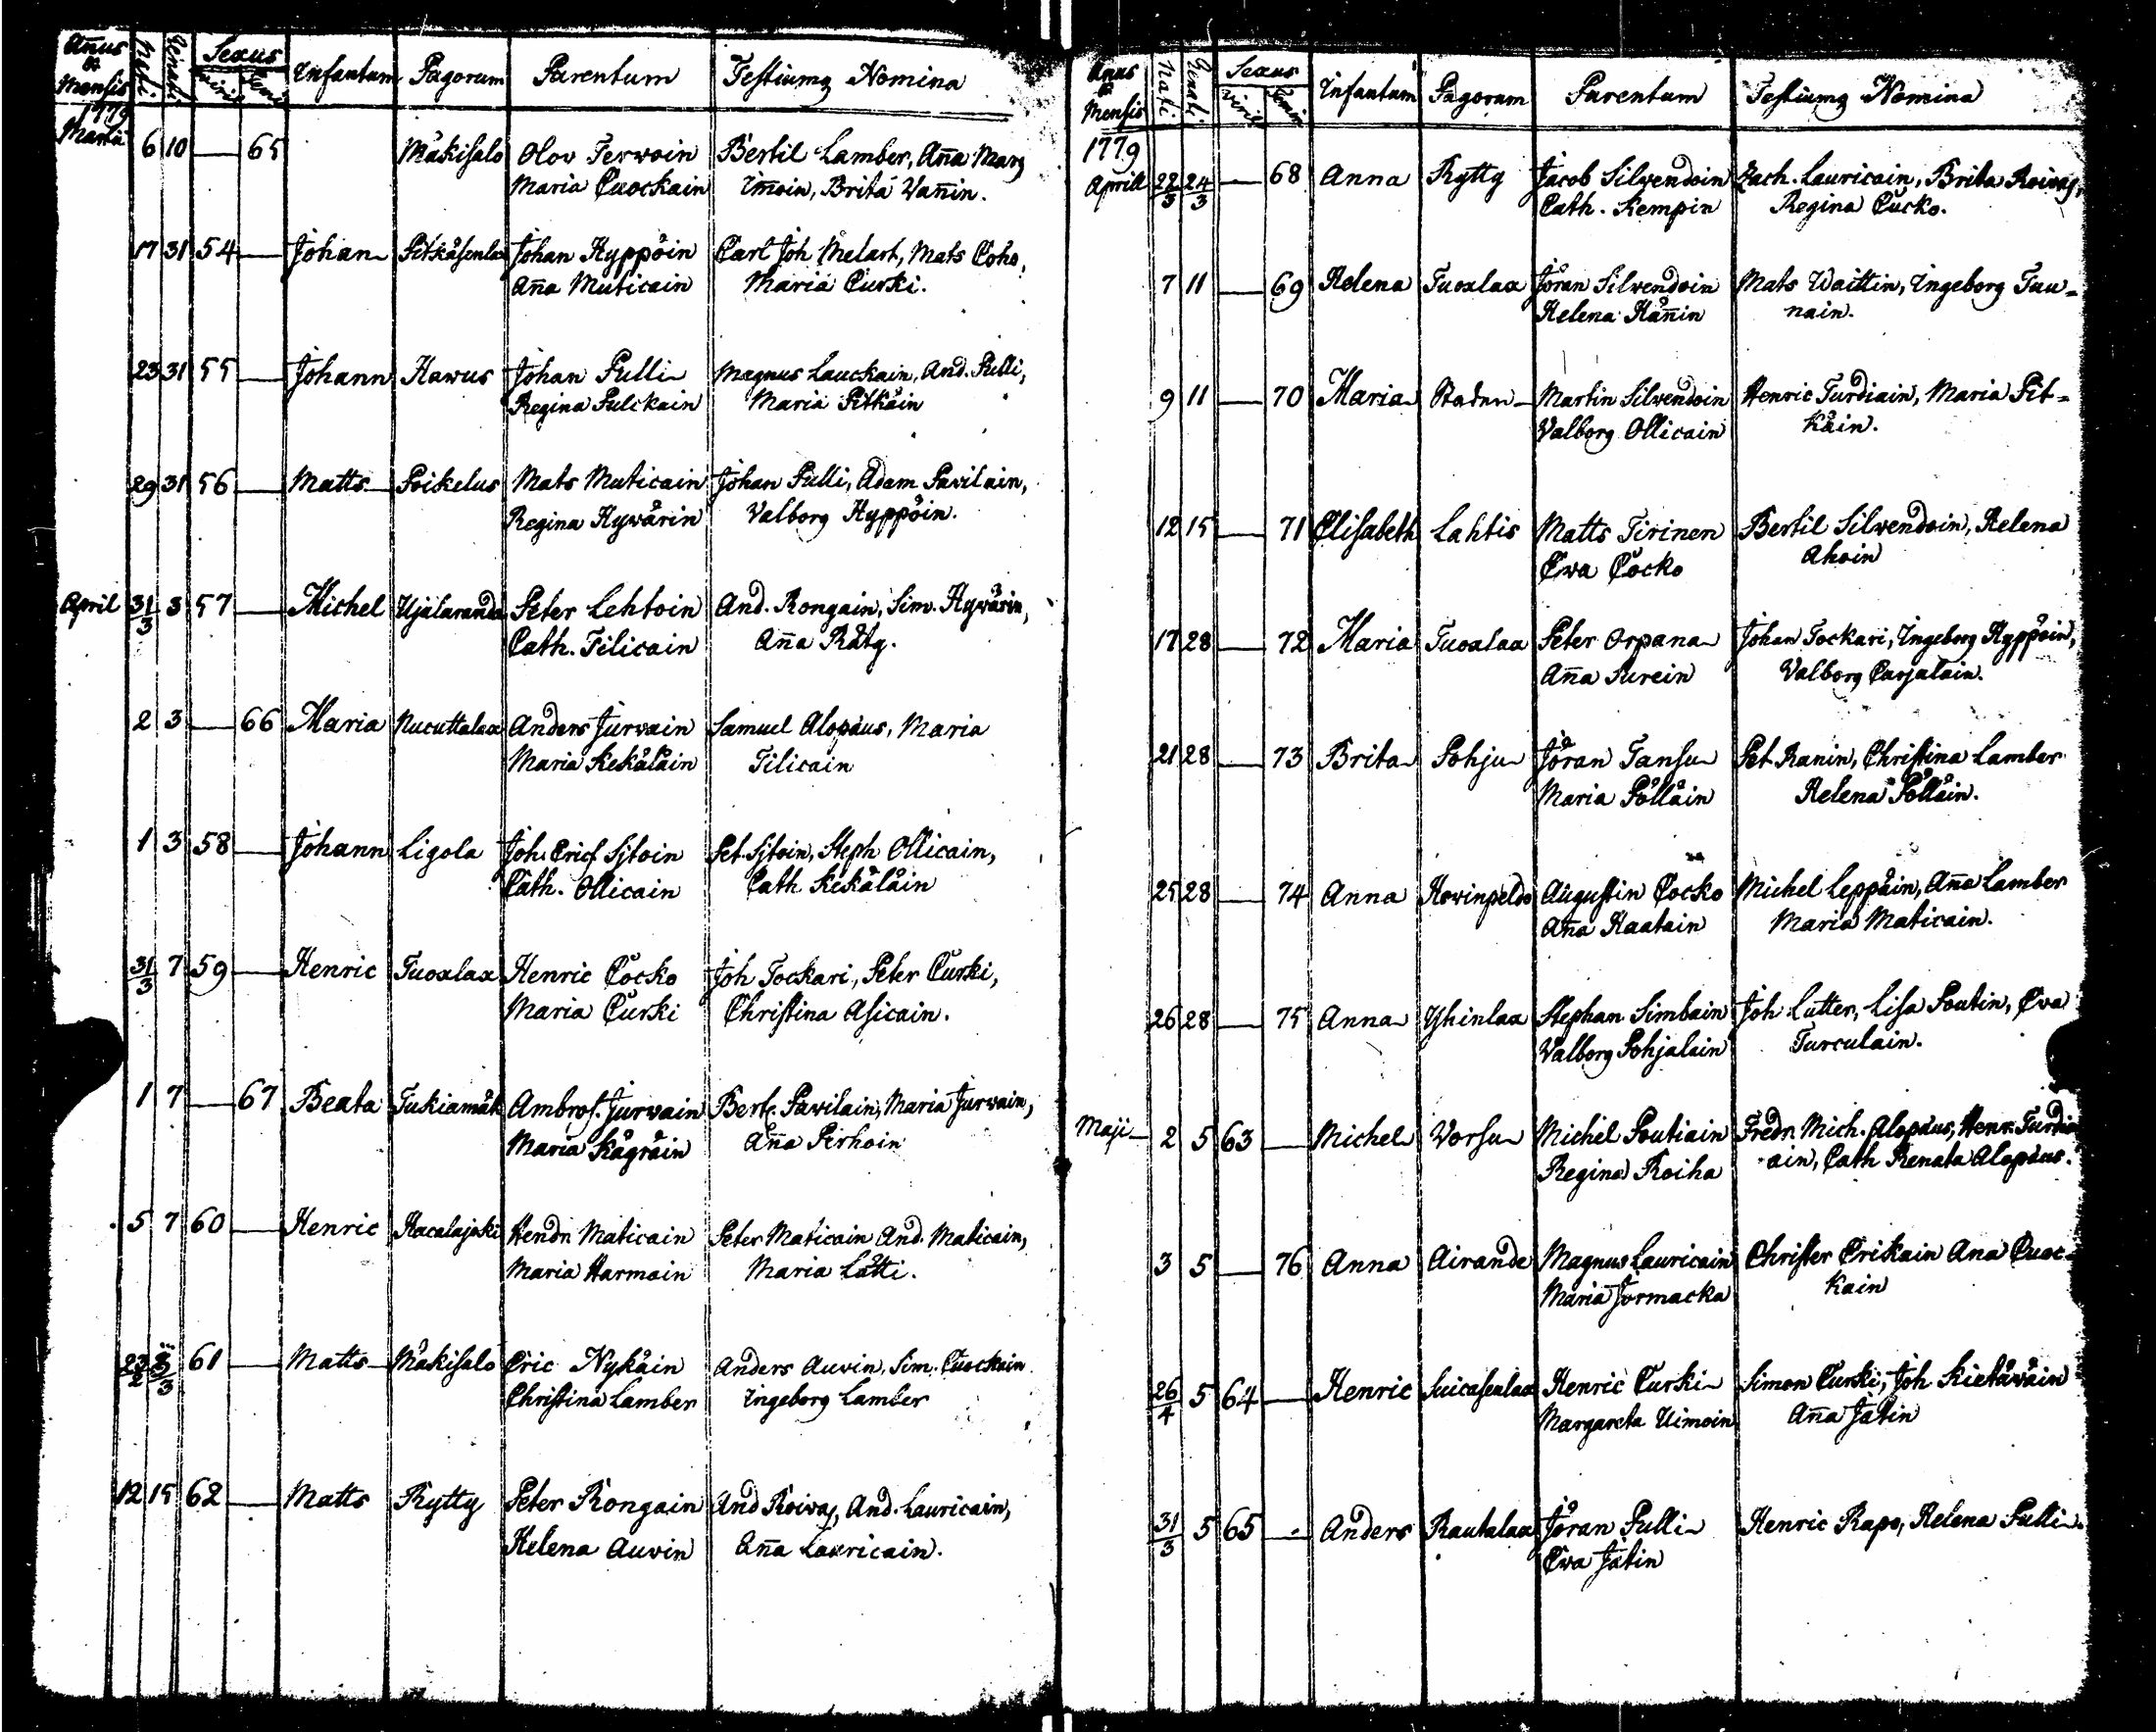 Anus & Mensis Nati Renati Sexus Viril Femi Infantum Pagorum Parentum Testiumq Nomina
1779
Martii 6 10 — 65 Mäkisalo Olov Terwoin Bertil Lamber, Aña Marg
Maria Cuockain Imoin, Brita Vañin.
17 31 54 — Johan Pitkäsenlax Johan Hyppöin Carl Joh Melart, Mats Coho,
Aña Muticain Maria Curki.
23 31 55 — Johann Hawus Johan Pulli Magnus Lauckain, And. Pulli,
Regina Pulckain Maria Pitkäin
29 31 56 — Matts Poikelus Mats Muticain Johan Pulli, Adam Pavilain,
Regina Hyvärin Valborg Hyppöin.
April 31/3 3 57 — Michel Ujalaranda Peter Lehtoin And. Rongain, Sim. Hyvärin,
Cath. Tilicain Aña Räty.
2 3 — 66 Maria Nucuttalax Anders Jurvain Samuel Alopæus, Maria
Maria Kekäläin Tilicain
1 3 58 — Johann Ligola Joh. Erics Sjtoin Pet. Sjtoin, Steph Ollicain,
Cath. Ollicain Cath Kekäläin
31/3 7 59 — Henric Tuoxlax Henric Cocko Joh Tockari, Peter Curki,
Maria Curki Christina Asicain.
1 7 — 67 Beata Tukiamäk Ambros. Jurvain Bert. Pavilain, Maria Jurvain,
Maria Kägräin Aña Pirhoin
5 7 60 — Henric Hacalajoki Hendr Maticain Peter Maticain And. Maticain,
Maria Harmain Maria Lätti.
23/2 /3 61 — Matts Mäkisalo Eric Nykäin Anders Auvin, Sim. Cuockain
Christina Lamber Ingeborg Lamber
12 15 62 — Matts Rytty Peter Rongain And Roivas, And. Lauricain,
Helena Auvin Aña Lauricain.
Anus & Mensis Nati Renati Sexus Viril Femin Infantum Pagorum Parentum Testiumq Nomina
1779
Aprill 22/3 24/3 — 68 Anna Rytty Jacob Silvendoin Zach. Lauricain, Brita Roivas,
Cath. Kempin Regina Cucko.
7 11 — 69 Helena Tuoxlax Jöran Silvendoin Mats Waittin, Ingeborg Tuu=
Helena Häñin nain.
9 11 — 70 Maria Staden Martin Silvendoin Henric Turdiain, Maria Pit=
Valborg Ollicain käin.
12 15 — 71 Elisabeth Lahtis Matts Tirinen Bertil Silvendoin, Helena
Ewa Cocko Ahoin
17 28 — 72 Maria Tuoxlax Peter Orpana Johan Tockari, Ingeborg Hyppöin,
Aña Purein Valborg Carjalain.
21 28 — 73 Brita Pohju Jöran Tansu Pet. Ranin, Christina Lamber
Maria Pölläin Helena Pölläin.
25 28 — 74 Anna Hovinpeldo Augustin Cocko Michel Leppäin, Aña Lamber
Aña Haatain Maria Maticain.
26 28 — 75 Anna Yhinlax Stephan Simbain Joh Lutter, Lisa Poutin, Ewa
Valborg Pohjalain Turculain.
Maji 2 5 63 — Michel Vorsu Michel Poutiain Fredr. Mich. Alopæus, Henr. Turdi
Regina Roiha ain, Cath Renata Alopæus.
3 5 — 76 Anna Airande Magnus Lauricain Christer Erikain Ana Cuoc=
Maria Jormacka kain
26/4 5 64 — Henric Suicasenlax Henric Curki Simon Curki, Joh Kietäväin
Margareta Uimoin Aña Jätin
31/3 5 65 — Anders Rautalax Jöran Pulli Henric Rapo, Helena Pulli.
Ewa Jätin